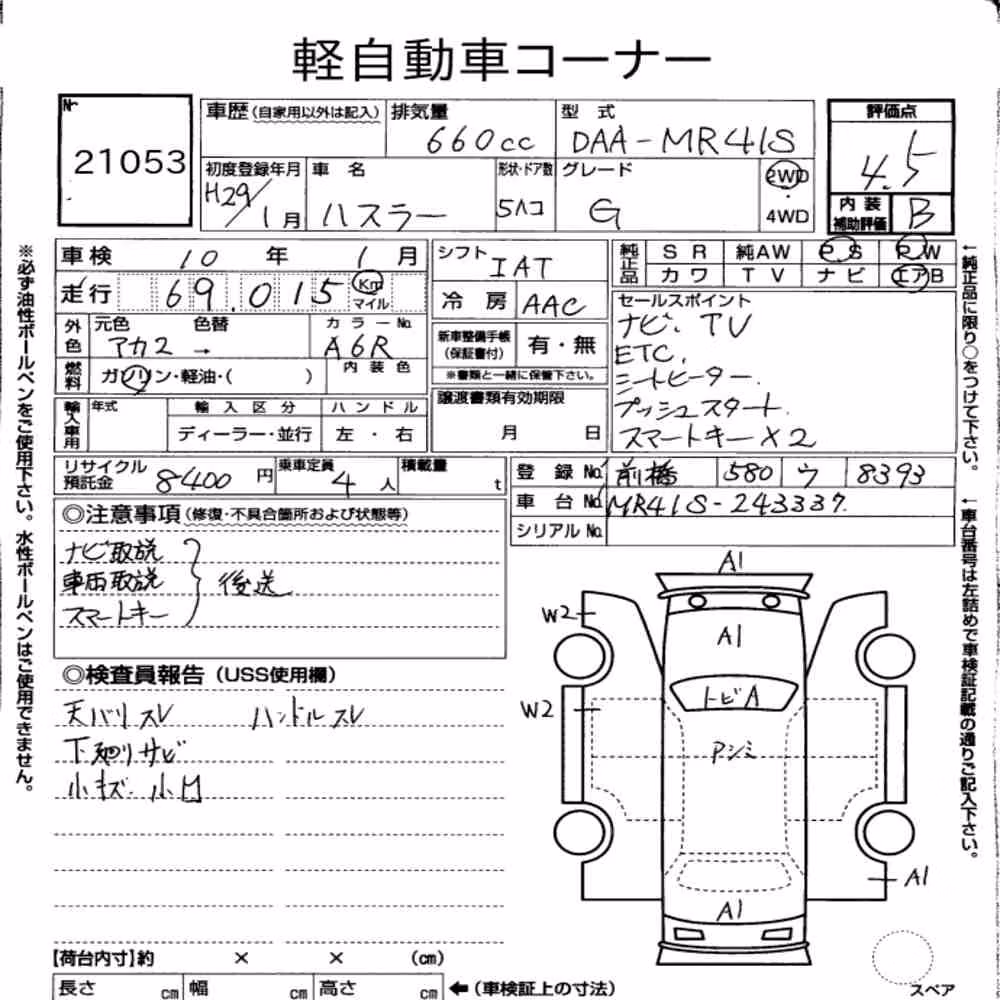 軽自動車コーナー
No
21053
車歴(自家用以外は記入) 排気量 660cc 型式 DAA-MR41S
評価点 4.5
初度登録年月 H29/1月 車名 ハスラー 形状・ドア数 5ハコ グレード G 2WD・4WD
内装補助評価 B
車検 10年 1月
走行 69,015 Km マイル
シフト IAT
冷房 AAC
純正品 SR 純AW P.S P.W
カワ TV ナビ エアB
外色 元色 アカ2 → 色替 カラーNo. A6R
燃料 ガソリン・軽油・( ) 内装色
新車整備手帳(保証書付) 有・無
※書類と一緒に保管下さい。
セールスポイント
ナビ、TV
ETC,
シートヒーター.
プッシュスタート.
スマートキー×2
輸入車用 年式 輸入区分 ディーラー・並行 ハンドル 左・右
譲渡書類有効期限 月 日
リサイクル預託金 8400円 乗車定員 4人 積載量 t
登録No. 前橋 580 ウ 8393
車台No. MR41S-243337
シリアルNo.
◎注意事項(修復・不具合箇所および状態等)
ナビ取説
車両取説 後送
スマートキー
◎検査員報告(USS使用欄)
天バリスレ ハンドルスレ
下廻りサビ
小キズ.小凹
A1
W2
A1
トビA
W2
アシミ
A1
A1
【荷台内寸】約 × × (cm)
長さ cm 幅 cm 高さ cm ←(車検証上の寸法)
スペア
※必ず油性ボールペンをご使用下さい。水性ボールペンはご使用できません。
←純正品に限り○をつけて下さい。
←車台番号は左詰めで車検証記載の通りご記入下さい。